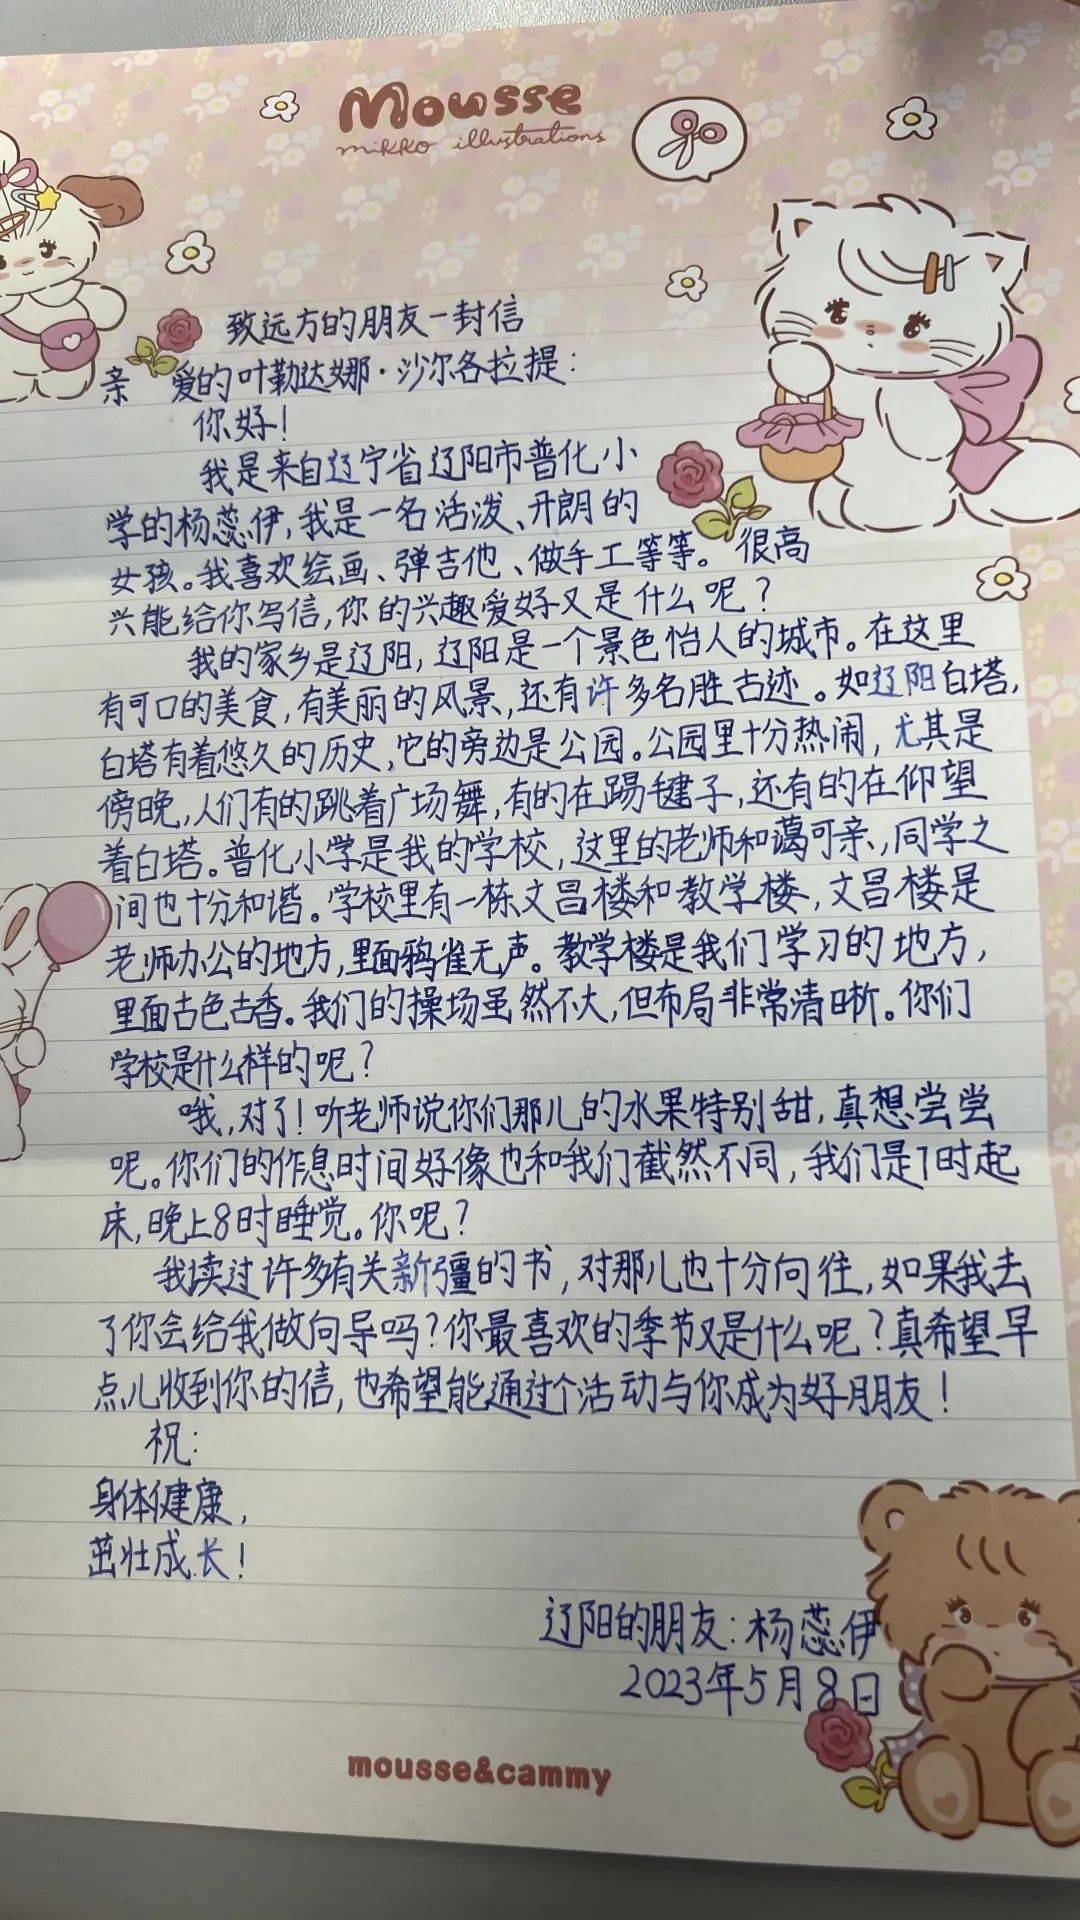 Mousse
mikko illustrations
致远方的朋友一封信
亲爱的叶勒达娜·沙尔各拉提：
你好！
我是来自辽宁省辽阳市普化小
学的杨蕊伊，我是一名活泼、开朗的
女孩。我喜欢绘画、弹吉他、做手工等等。很高
兴能给你写信，你的兴趣爱好又是什么呢？
我的家乡是辽阳，辽阳是一个景色怡人的城市。在这里
有可口的美食，有美丽的风景，还有许多名胜古迹。如辽阳白塔，
白塔有着悠久的历史，它的旁边是公园。公园里十分热闹，尤其是
傍晚，人们有的跳着广场舞，有的在踢毽子，还有的在仰望
着白塔。普化小学是我的学校，这里的老师和蔼可亲，同学之
间也十分和谐。学校里有一栋文昌楼和教学楼，文昌楼是
老师办公的地方，里面鸦雀无声。教学楼是我们学习的地方，
里面古色古香。我们的操场虽然不大，但布局非常清晰。你们
学校是什么样的呢？
哦，对了！听老师说你们那儿的水果特别甜，真想尝尝
呢。你们的作息时间好像也和我们截然不同，我们是7时起
床，晚上8时睡觉。你呢？
我读过许多有关新疆的书，对那儿也十分向往，如果我去
了你会给我做向导吗？你最喜欢的季节又是什么呢？真希望早
点儿收到你的信，也希望能通过个活动与你成为好朋友！
祝：
身体健康，
茁壮成长！
辽阳的朋友：杨蕊伊
2023年5月8日
mousse&cammy